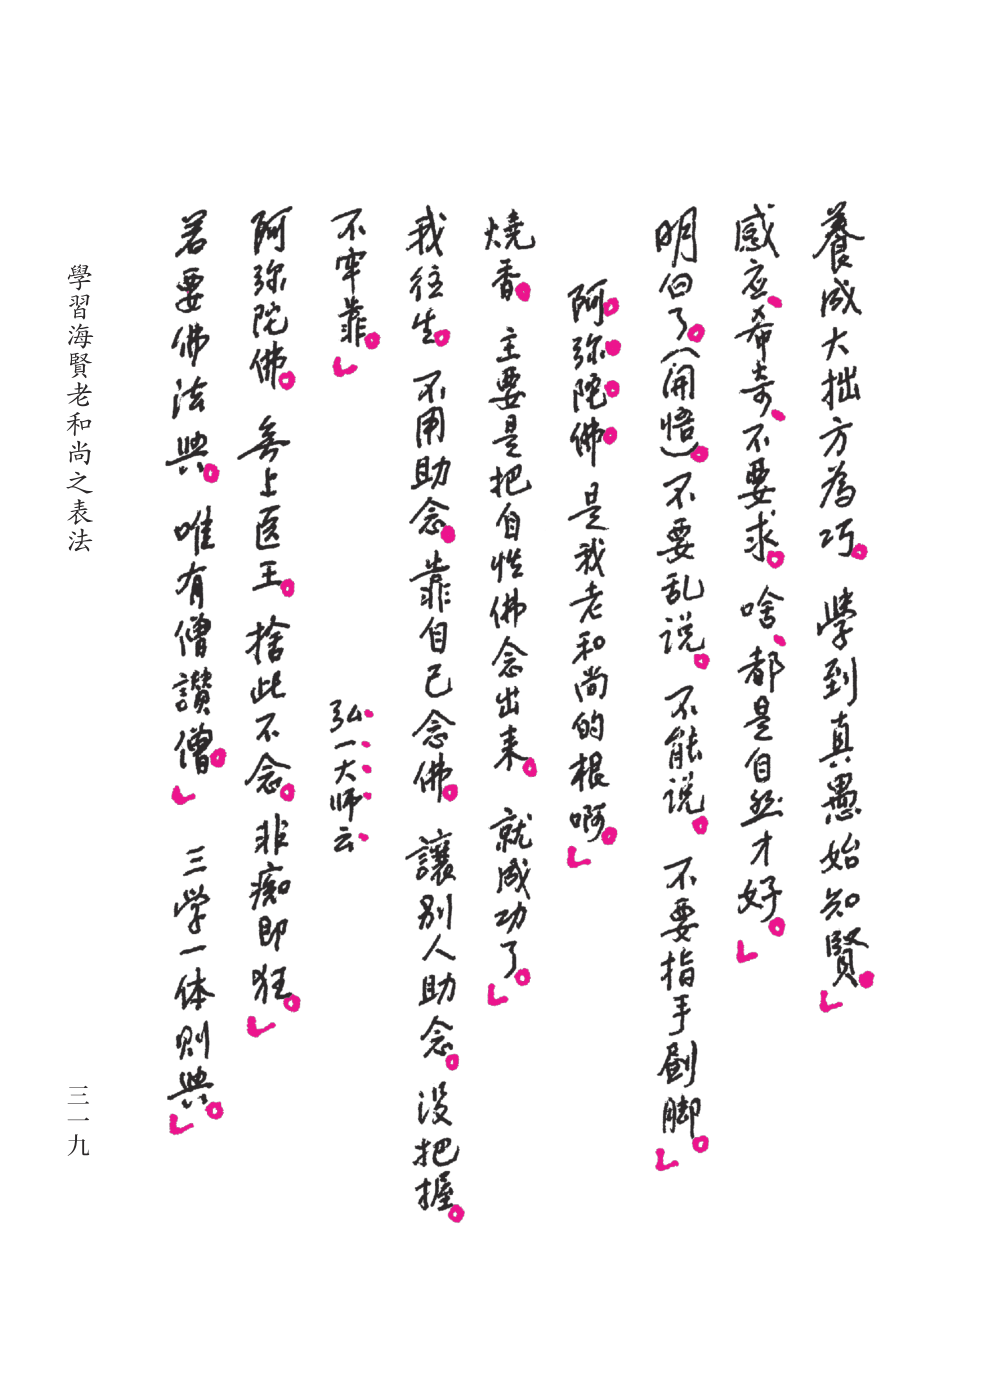 養成大拙方為巧。學到真愚始知賢。
感应、希奇、不要求。啥、都是自然才好。
明白了。(開悟)。不要乱说。不能说。不要指手劃脚。
阿弥陀佛 是我老和尚的根啊。
燒香。主要是把自性佛念出来。就成功了。
我往生。不用助念。靠自己念佛。讓別人助念。没把握。
不牢靠。 弘一大师云
阿弥陀佛。無上医王。捨此不念。非痴即狂。
若要佛法興。唯有僧讚僧。三学一体则興。
學習海賢老和尚之表法
三一九